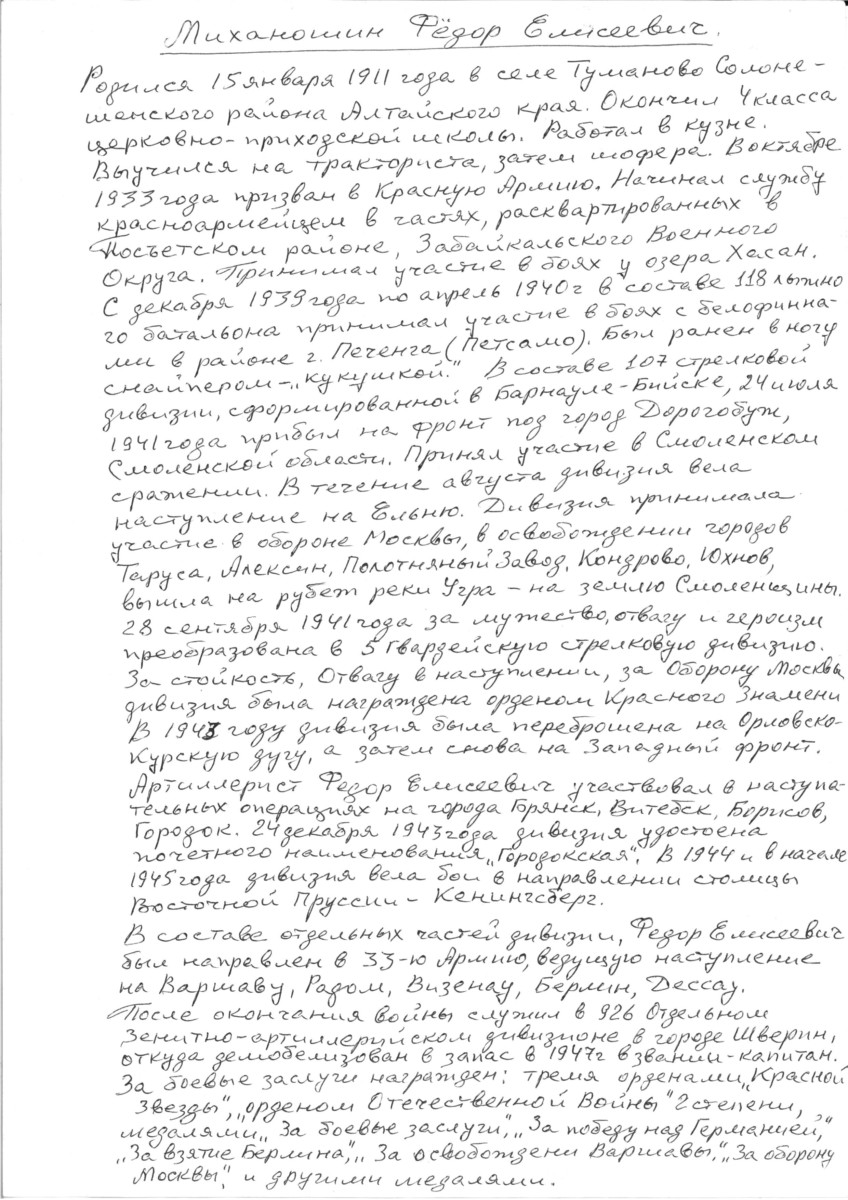 Миханошин Фёдор Елисеевич.
Родился 15 января 1911 года в селе Туманово Солоне-
шенского района Алтайского края. Окончил 4 класса
церковно-приходской школы. Работал в кузне.
Выучился на тракториста, затем шофера. В октябре
1933 года призван в Красную Армию. Начинал службу
красноармейцем в частях, расквартированных в
Посьетском районе, Забайкальского Военного
Округа. Принимал участие в боях у озера Хасан.
С декабря 1939 года по апрель 1940 г в составе 118 лыжно
го батальона принимал участие в боях с белофинна-
ми в районе г. Печенга (Петсамо). Был ранен в ногу
снайпером-„кукушкой." В составе 107 стрелковой
дивизии, сформированной в Барнауле-Бийске, 24 июля
1941 года прибыл на фронт под город Дорогобуж,
Смоленской области. Принял участие в Смоленском
сражении. В течение августа дивизия вела
наступление на Ельню. Дивизия принимала
участие в обороне Москвы, в освобождении городов
Таруса, Алексин, Полотняный Завод, Кондрово, Юхнов,
вышла на рубеж реки Угра - на землю Смоленщины.
28 сентября 1941 года за мужество, отвагу и героизм
преобразована в 5 Гвардейскую стрелковую дивизию.
За стойкость, Отвагу в наступлении, за Оборону Москвы
дивизия была награждена орденом Красного Знамени
В 1943 году дивизия была переброшена на Орловско-
Курскую дугу, а затем снова на Западный фронт.
Артиллерист Федор Елисеевич участвовал в наступа-
тельных операциях на города Брянск, Витебск, Борисов,
Городок. 24 декабря 1943 года дивизия удостоена
почетного наименования „Городокская". В 1944 и в начале
1945 года дивизия вела бои в направлении столицы
Восточной Пруссии - Кенингсберг.
В составе отдельных частей дивизии, Федор Елисеевич
был направлен в 33-ю Армию, ведущую наступление
на Варшаву, Радом, Визенау, Берлин, Дессау.
После окончания войны служил в 926 Отдельном
Зенитно-артиллерийском дивизионе в городе Шверин,
откуда демобелизован в запас в 1947 г в звании-капитан.
За боевые заслуги награжден: тремя орденами „Красной
Звезды", „орденом Отечественной Войны" 2 степени,
медалями „За боевые заслуги", „За победу над Германией",
„За взятие Берлина", „За освобождени Варшавы", „За оборону
Москвы", и другими медалями.